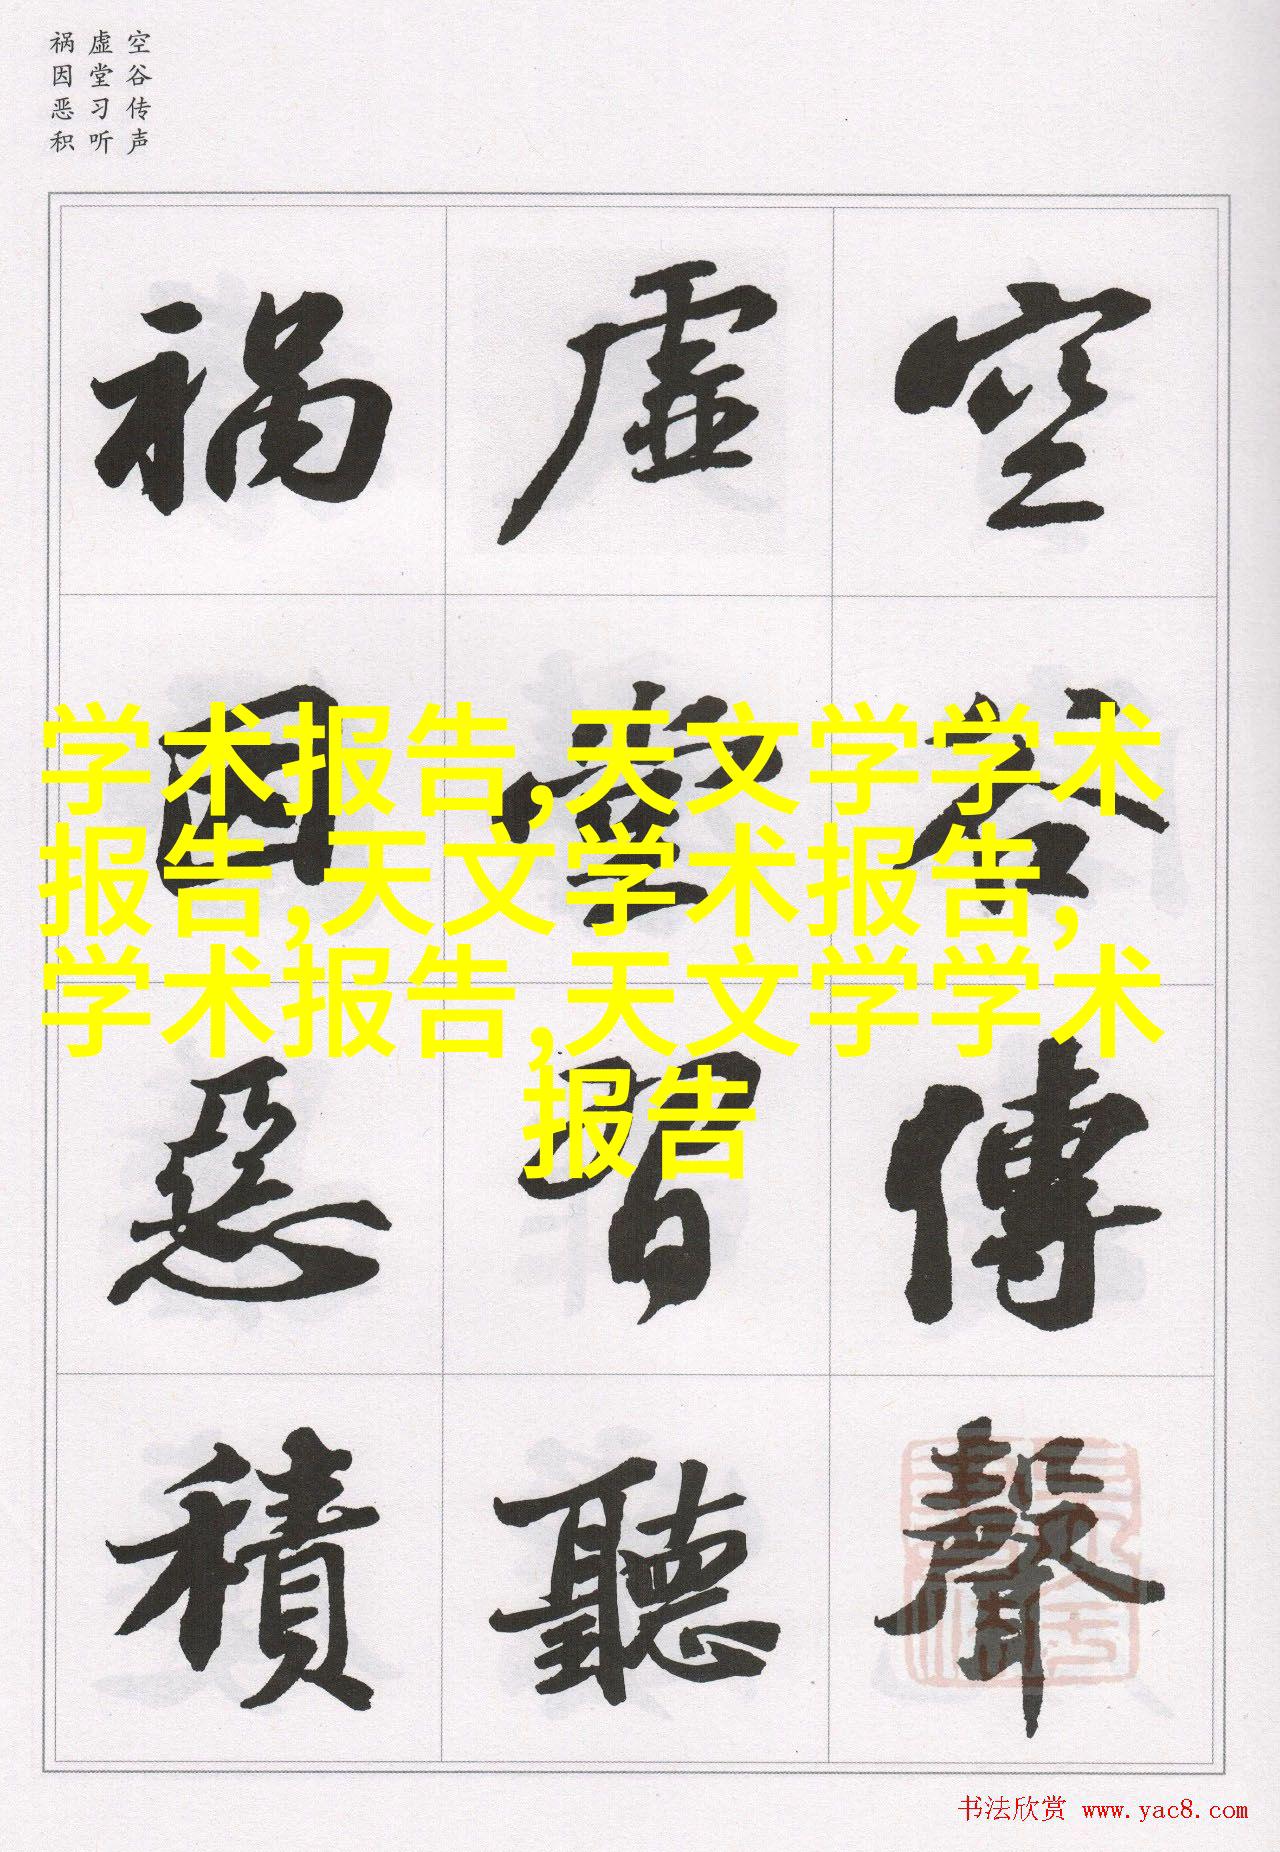 空谷传声
虚堂习听
祸因恶积
空谷傳聲
虚堂習聽
禍因惡積
学术报告,天文学学术
报告,天文学术报告,
学术报告,天文学学术
报告
书法欣赏 www.yac8.com